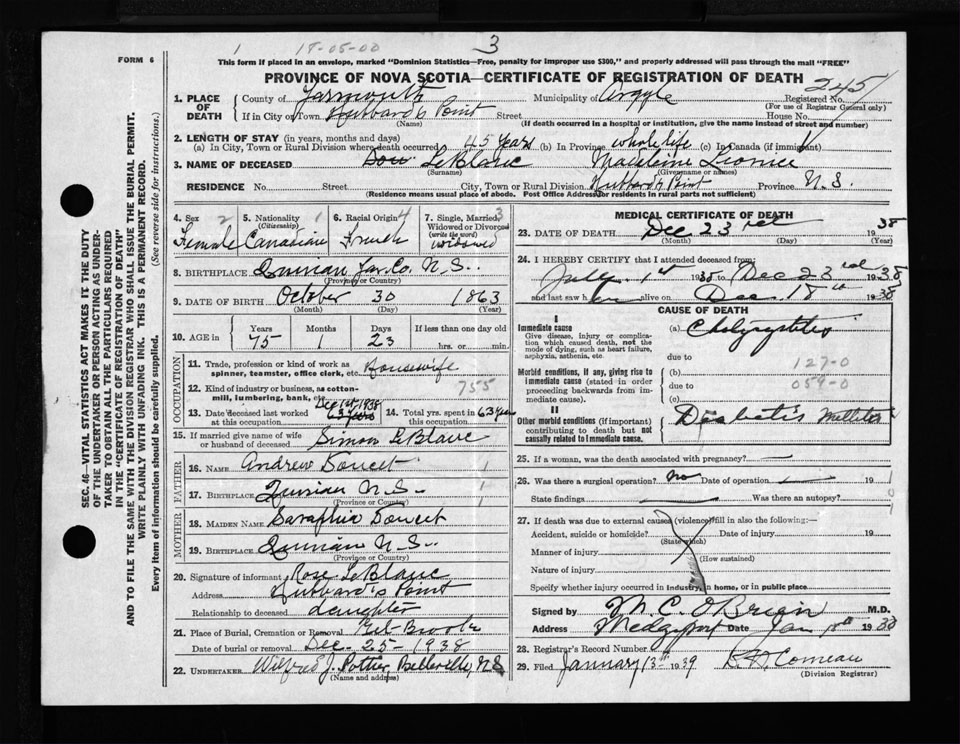 1 18-05-00 3
FORM 6
This form if placed in an envelope, marked "Dominion Statistics—Free, penalty for improper use $300," and properly addressed will pass through the mail "FREE"
PROVINCE OF NOVA SCOTIA—CERTIFICATE OF REGISTRATION OF DEATH
245
1. PLACE OF DEATH County of Yarmouth Municipality of Argyle Registered No.
(For use of Registrar General only)
If in City or Town Hubbard's Point House No.
(Name) (If death occurred in a hospital or institution, give the name instead of street and number)
2. LENGTH OF STAY (in years, months and days)
(a) In City, Town or Rural Division where death occurred 45 Years (b) In Province whole life (c) In Canada (if immigrant)
3. NAME OF DECEASED LeBlanc Madeleine
(Surname) (Given name or names)
RESIDENCE No. Street City, Town or Rural Division Hubbard's Point Province N.S.
(Residence means usual place of abode. Post Office Address for residents in rural parts not sufficient)
4. Sex 2 Female
5. Nationality (Citizenship) 1 Canadian
6. Racial Origin 4 French
7. Single, Married, Widowed or Divorced (write the word) 3 widowed
8. BIRTHPLACE Quinan Yar. Co. N.S.
(Province or Country)
9. DATE OF BIRTH October 30 1863
(Month) (Day) (Year)
10. AGE in Years 75 Months 1 Days 23 If less than one day old hrs. or min.
OCCUPATION
11. Trade, profession or kind of work as spinner, teamster, office clerk, etc. Housewife
12. Kind of industry or business, as cotton-mill, lumbering, bank, etc. 755
13. Date deceased last worked at this occupation Dec 1st, 1938
14. Total yrs. spent in this occupation 63 years
15. If married give name of wife or husband of deceased Simon LeBlanc
FATHER
16. NAME Andrew Doucet 1
17. BIRTHPLACE Quinan N.S. 1
(Province or Country)
MOTHER
18. MAIDEN NAME Doucet
19. BIRTHPLACE Quinan N.S.
(Province or Country)
20. Signature of informant Rose LeBlanc
Address Hubbard's Point
Relationship to deceased daughter
21. Place of Burial, Cremation or Removal Brook
Date of burial or removal Dec. 25 - 1938
22. UNDERTAKER Wilfred J. Pottier, Belleville, N.S.
(Name and address)
MEDICAL CERTIFICATE OF DEATH
23. DATE OF DEATH Dec 23rd 1938
(Month) (Day) (Year)
24. I HEREBY CERTIFY that I attended deceased from:
July 1st 1938 to Dec 23rd 1938
and last saw her alive on Dec. 18th 1938
CAUSE OF DEATH
I
Immediate cause (a) Cholycystitis
Give disease, injury or complication which caused death, not the mode of dying, such as heart failure, asphyxia, asthenia, etc.
due to 127-0
Morbid conditions, if any, giving rise to immediate cause (stated in order proceeding backwards from immediate cause).
(b)
due to 059-0
(c)
II
Other morbid conditions (if important) contributing to death but not causally related to immediate cause.
Diabetis Mellitus
25. If a woman, was the death associated with pregnancy? —
26. Was there a surgical operation? No Date of operation — 19
State findings — Was there an autopsy?
27. If death was due to external causes (violence) fill in also the following:—
Accident, suicide or homicide? (State which) Date of injury 19
Manner of injury (How sustained)
Nature of injury
Specify whether injury occurred in industry, in home, or in public place
Signed by M. C. O'Brien M.D.
Address Date Jan 10th 19
28. Registrar's Record Number
29. Filed January 13th 1939 Comeau
(Division Registrar)
SEC. 46—VITAL STATISTICS ACT MAKES IT THE DUTY
OF THE UNDERTAKER OR PERSON ACTING AS UNDER-
TAKER TO OBTAIN ALL THE PARTICULARS REQUIRED
IN THE "CERTIFICATE OF REGISTRATION OF DEATH"
AND TO FILE THE SAME WITH THE DIVISION REGISTRAR WHO SHALL ISSUE THE BURIAL PERMIT.
WRITE PLAINLY WITH UNFADING INK. THIS IS A PERMANENT RECORD.
Every item of information should be carefully supplied. (See reverse side for instructions.)